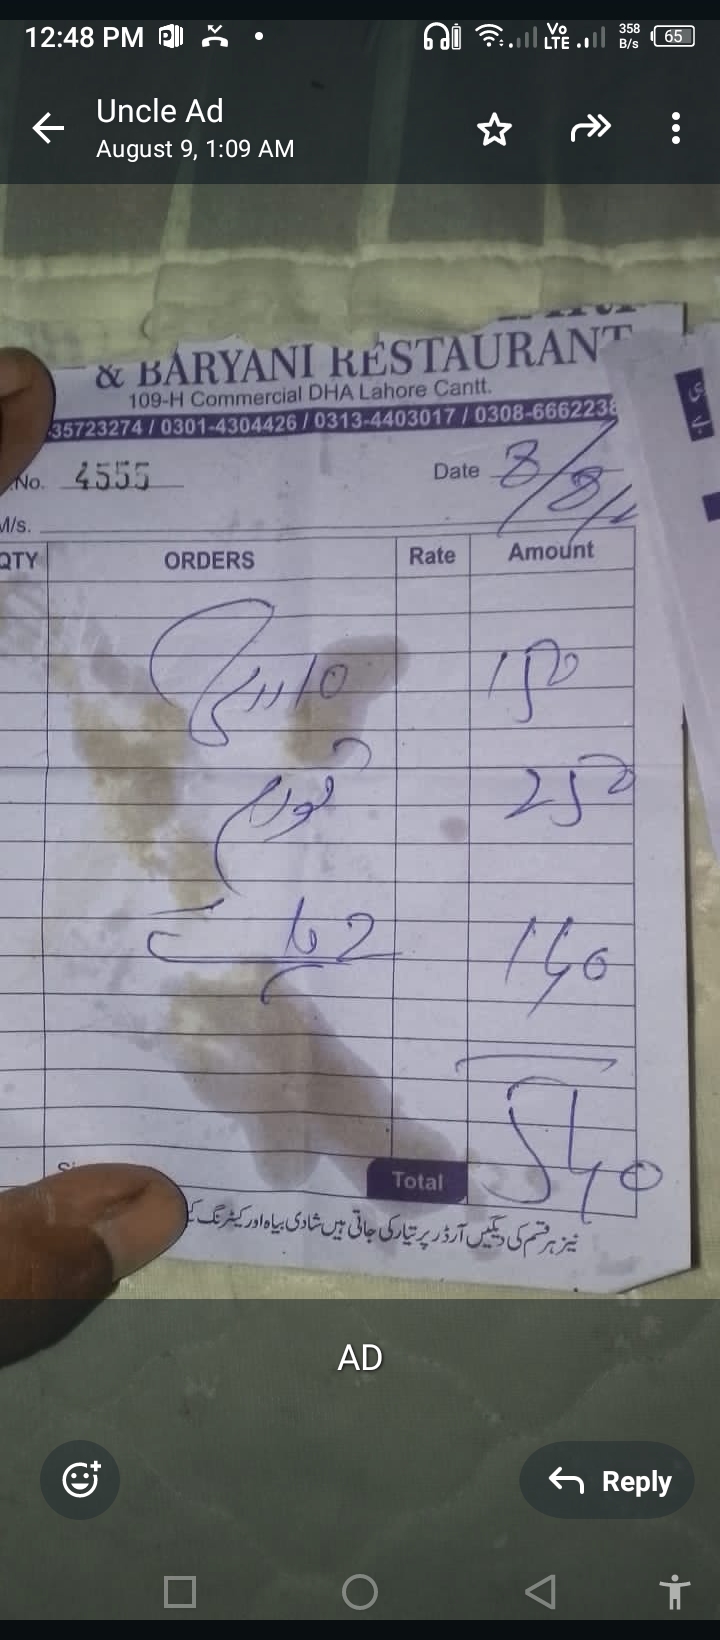 12:48 PM
Vo LTE 358 B/s 65
Uncle Ad
August 9, 1:09 AM
& BARYANI RESTAURANT
109-H Commercial DHA Lahore Cantt.
35723274 / 0301-4304426 / 0313-4403017 / 0308-6662238
No. 4555 Date 8/8/
M/s.
QTY ORDERS Rate Amount
10 150
قورمہ 250
2 140
Total 540
نیز ہر قسم کی دیگیں آرڈر پر تیار کی جاتی ہیں شادی بیاہ اور کیٹرنگ
AD
Reply